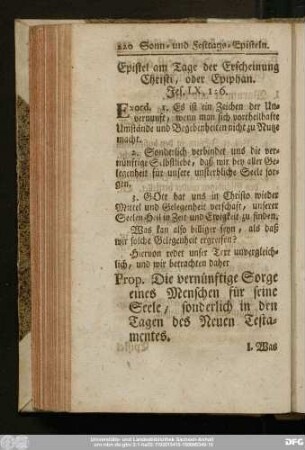 220 Sonn- und Festtags-Episteln.
Epistel am Tage der Erscheinung
Christi, oder Epiphan.
Jes. LX, 1:6.
Exord. 1. Es ist ein Zeichen der Un-
vernunft, wenn man sich vortheilhafte
Umstände und Begebenheiten nicht zu Nutze
macht.
2. Sonderlich verbindet uns die ver-
nünftige Selbstliebe, daß wir bey aller Ge-
legenheit für unsere unsterbliche Seele sor-
gen.
3. GOtt hat uns in Christo wieder
Mittel und Gelegenheit verschaft, unserer
Seelen Heil in Zeit und Ewigkeit zu finden.
Was kan also billiger seyn, als daß
wir solche Gelegenheit ergreifen?
Hiervon redet unser Text unvergleich-
lich, und wir betrachten daher
Prop. Die vernünftige Sorge
eines Menschen für seine
Seele, sonderlich in den
Tagen des Neuen Testa-
mentes.
I. Was
Universitäts- und Landesbibliothek Sachsen-Anhalt
DFG